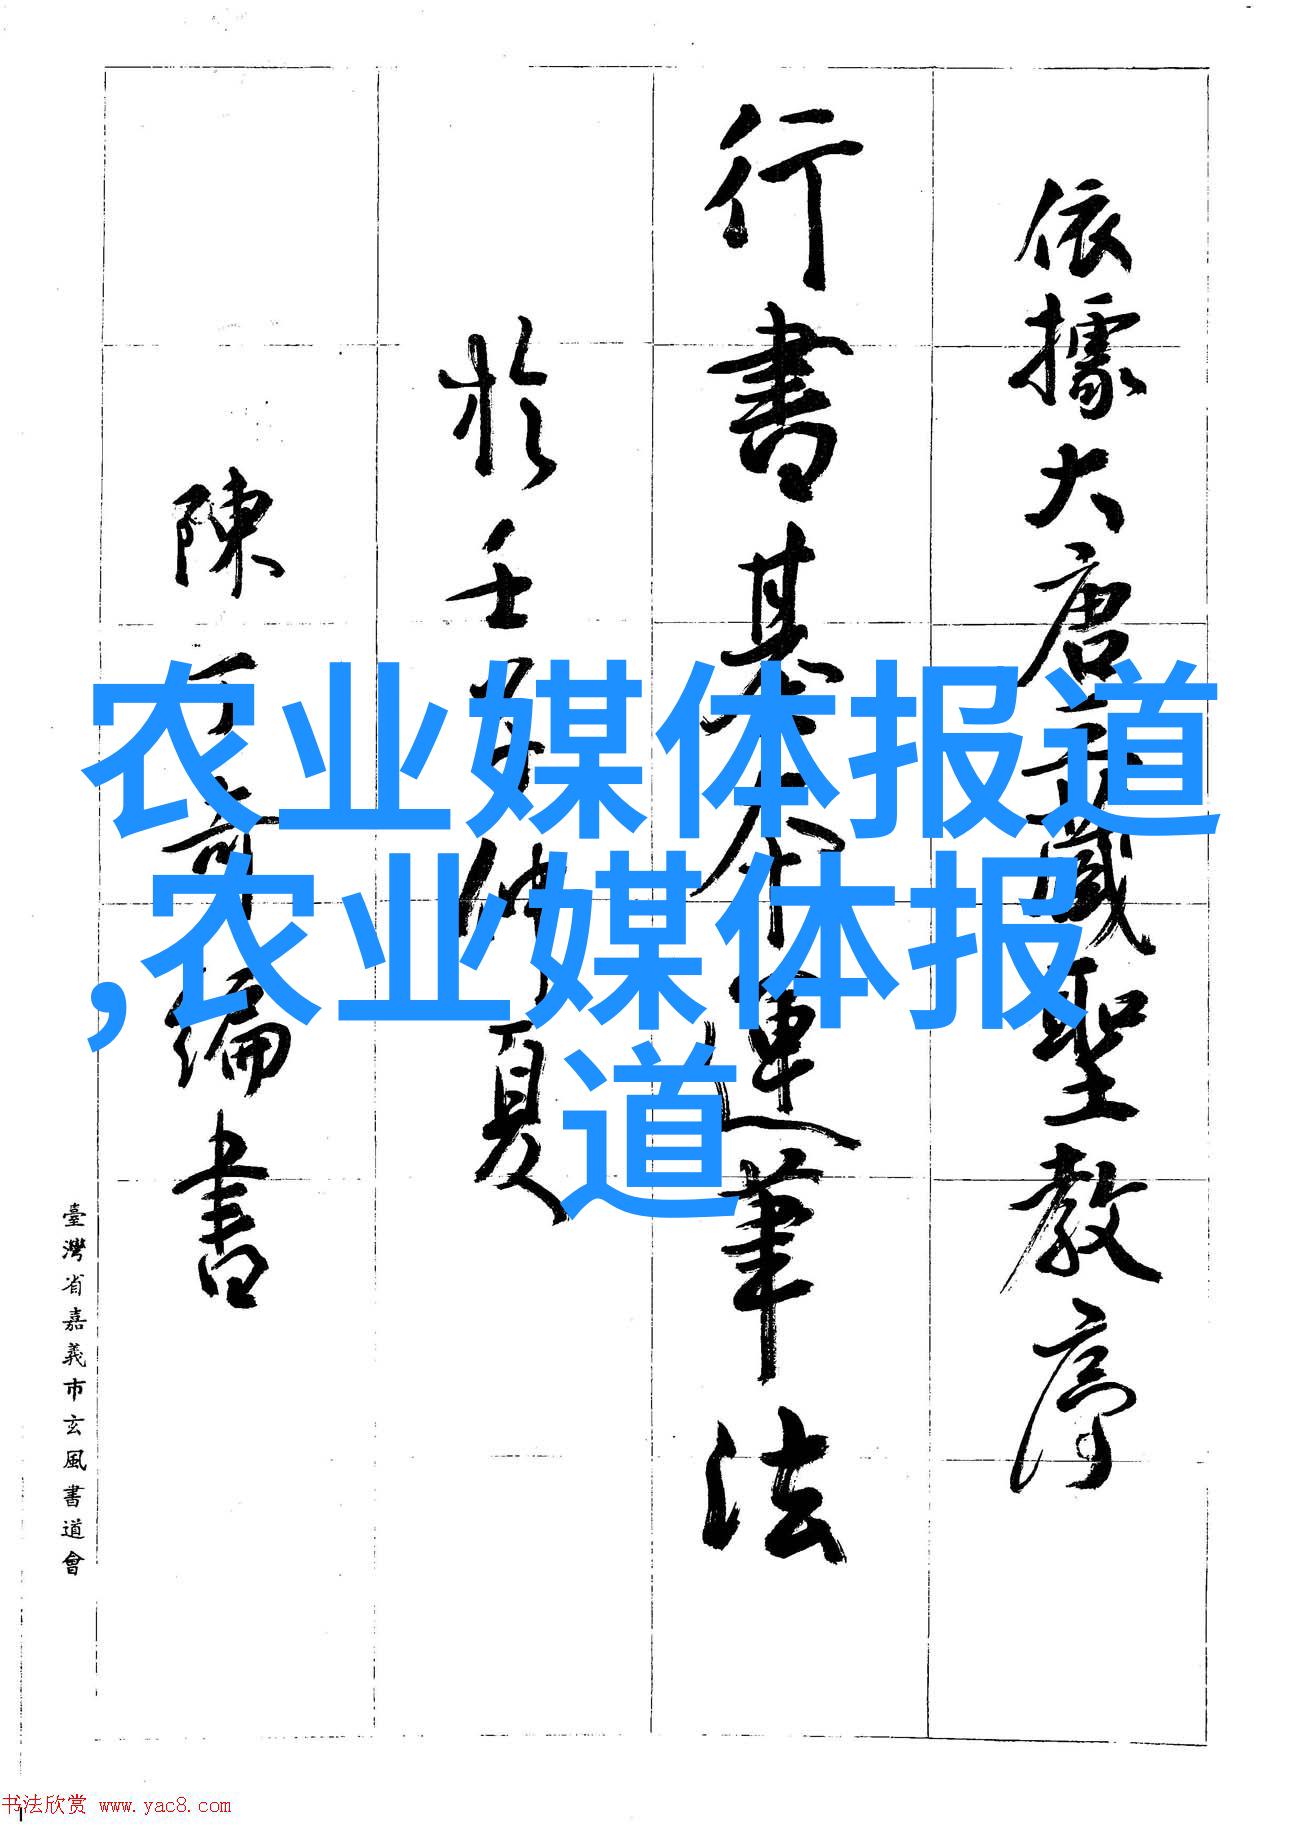 依據大唐三藏聖教序
行書基本運筆法
於壬
仲夏
陳
編書
臺灣省嘉義市玄風書道會
农业媒体报道
,农业媒体报
道
书法欣赏 www.yac8.com